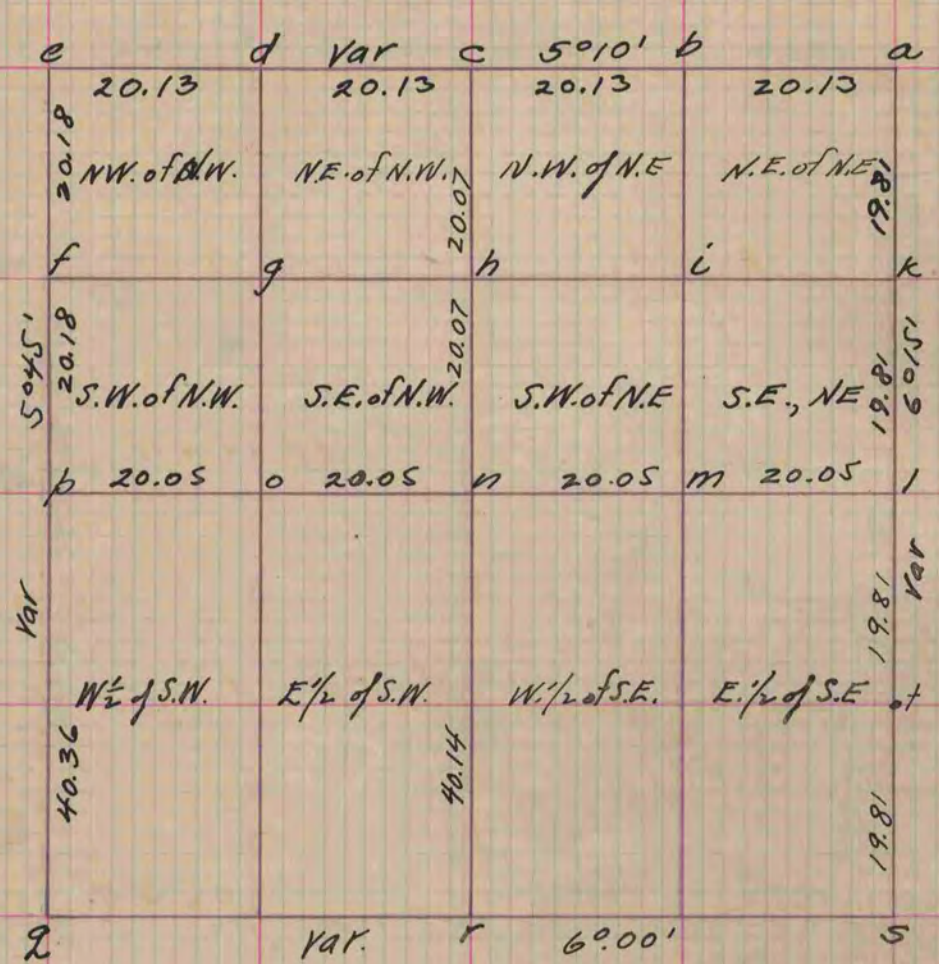 e d var c 5°10' b a
20.13 20.13 20.13 20.13
20.18
NW. of N.W. N.E. of N.W. N.W. of N.E N.E. of N.E
20.07
19.81
f g h i k
5°45'
20.18
20.07
19.81
6°15'
S.W. of N.W. S.E. of N.W. S.W. of N.E S.E., NE
p 20.05 o 20.05 n 20.05 m 20.05 l
Var
Var
19.81
W½ of S.W. E.1/2 of S.W. W.1/2 of S.E. E.1/2 of S.E t
40.36
40.14
19.81
q var. r 6°.00' s